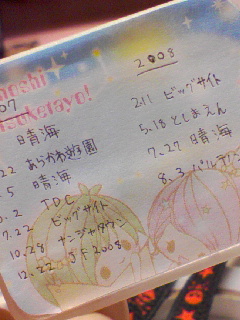 hoshi
tsukerayo!
07
晴海
22 あらかわ遊園
5 晴海
0.2 TDC
7.22 ビッグサイト
10.28 ナンジャタウン
12.22 JF2008
2008
2.11 ビッグサイト
5.18 としまえん
7.27 晴海
8.3